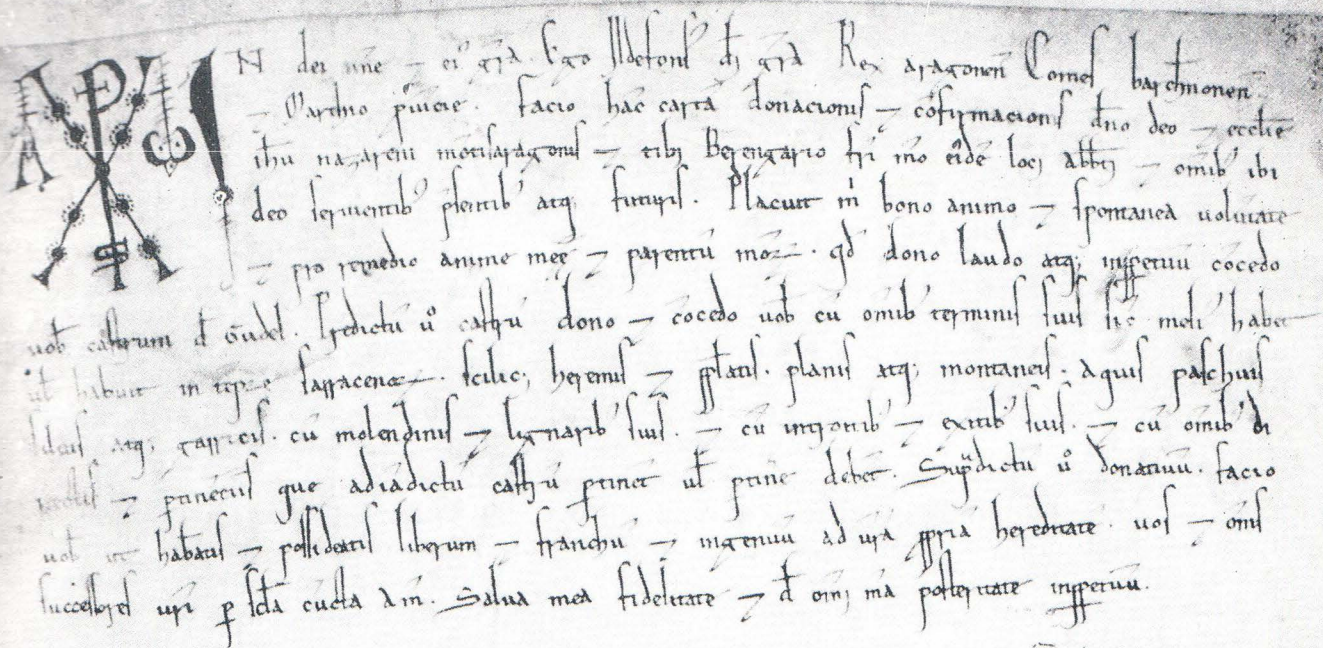 IN dei nn̄e ⁊ ei' grā. Ego Ildefons' dī grā Rex aragonen̄ Comes barchinonen̄
⁊ Marchio p̄uincie. facio hac cartā donacionis ⁊ cōfirmacionis dn̄o deo ⁊ ecclie
ih̄u nazareni mōtisaragonis ⁊ tibi Berengario fr̄i mō eide loci abb̄i ⁊ omib' ibi
deo seruientib' p̄sentib' atq; futuris. Placuit m̄ bono animo ⁊ spontanea uolūtate
⁊ pro remedio anime meę ⁊ parentū moꝝ. qd̄ dono laudo atq; inꝑpetuū cōcedo
uob' castrum d̄ Gudel. Predictū u° castrū dono ⁊ cōcedo uob' cū omib' terminis suis sic meli' habet
ul̄ habuit in tēpr̄e sarracenoꝝ. scilic; heremis ⁊ pplatis. planis atq; montaneis. Aquis paschuis
atq; garricis. cū molendinis ⁊ lignarib' suis. ⁊ cū introitib' ⁊ exitib' suis. ⁊ cū omib' di
⁊ ꝑtinēciis que ad iādictū castrū ꝑtinet ul̄ ꝑtinē debet. Supͣdictū u° donatiuū. facio
uob' ut habeatis ⁊ possideatis liberum ⁊ franchū ⁊ ingenuū ad urā ꝓpriā hereditatē. uos ⁊ om̄s
successores ur̄i ꝑ scl̄a cūcta am̄. Salua mea fidelitate ⁊ d̄ omi mā posteritate inꝑpetuū.